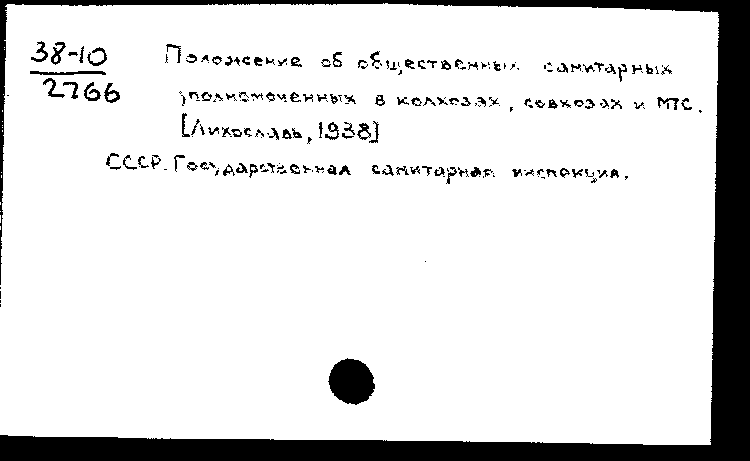 38-10
2766
Положение об общественных санитарных
уполномоченных в колхозах, совхозах и МТС.
[Лихославль, 1938]
СССР. Государственная санитарная инспекция.